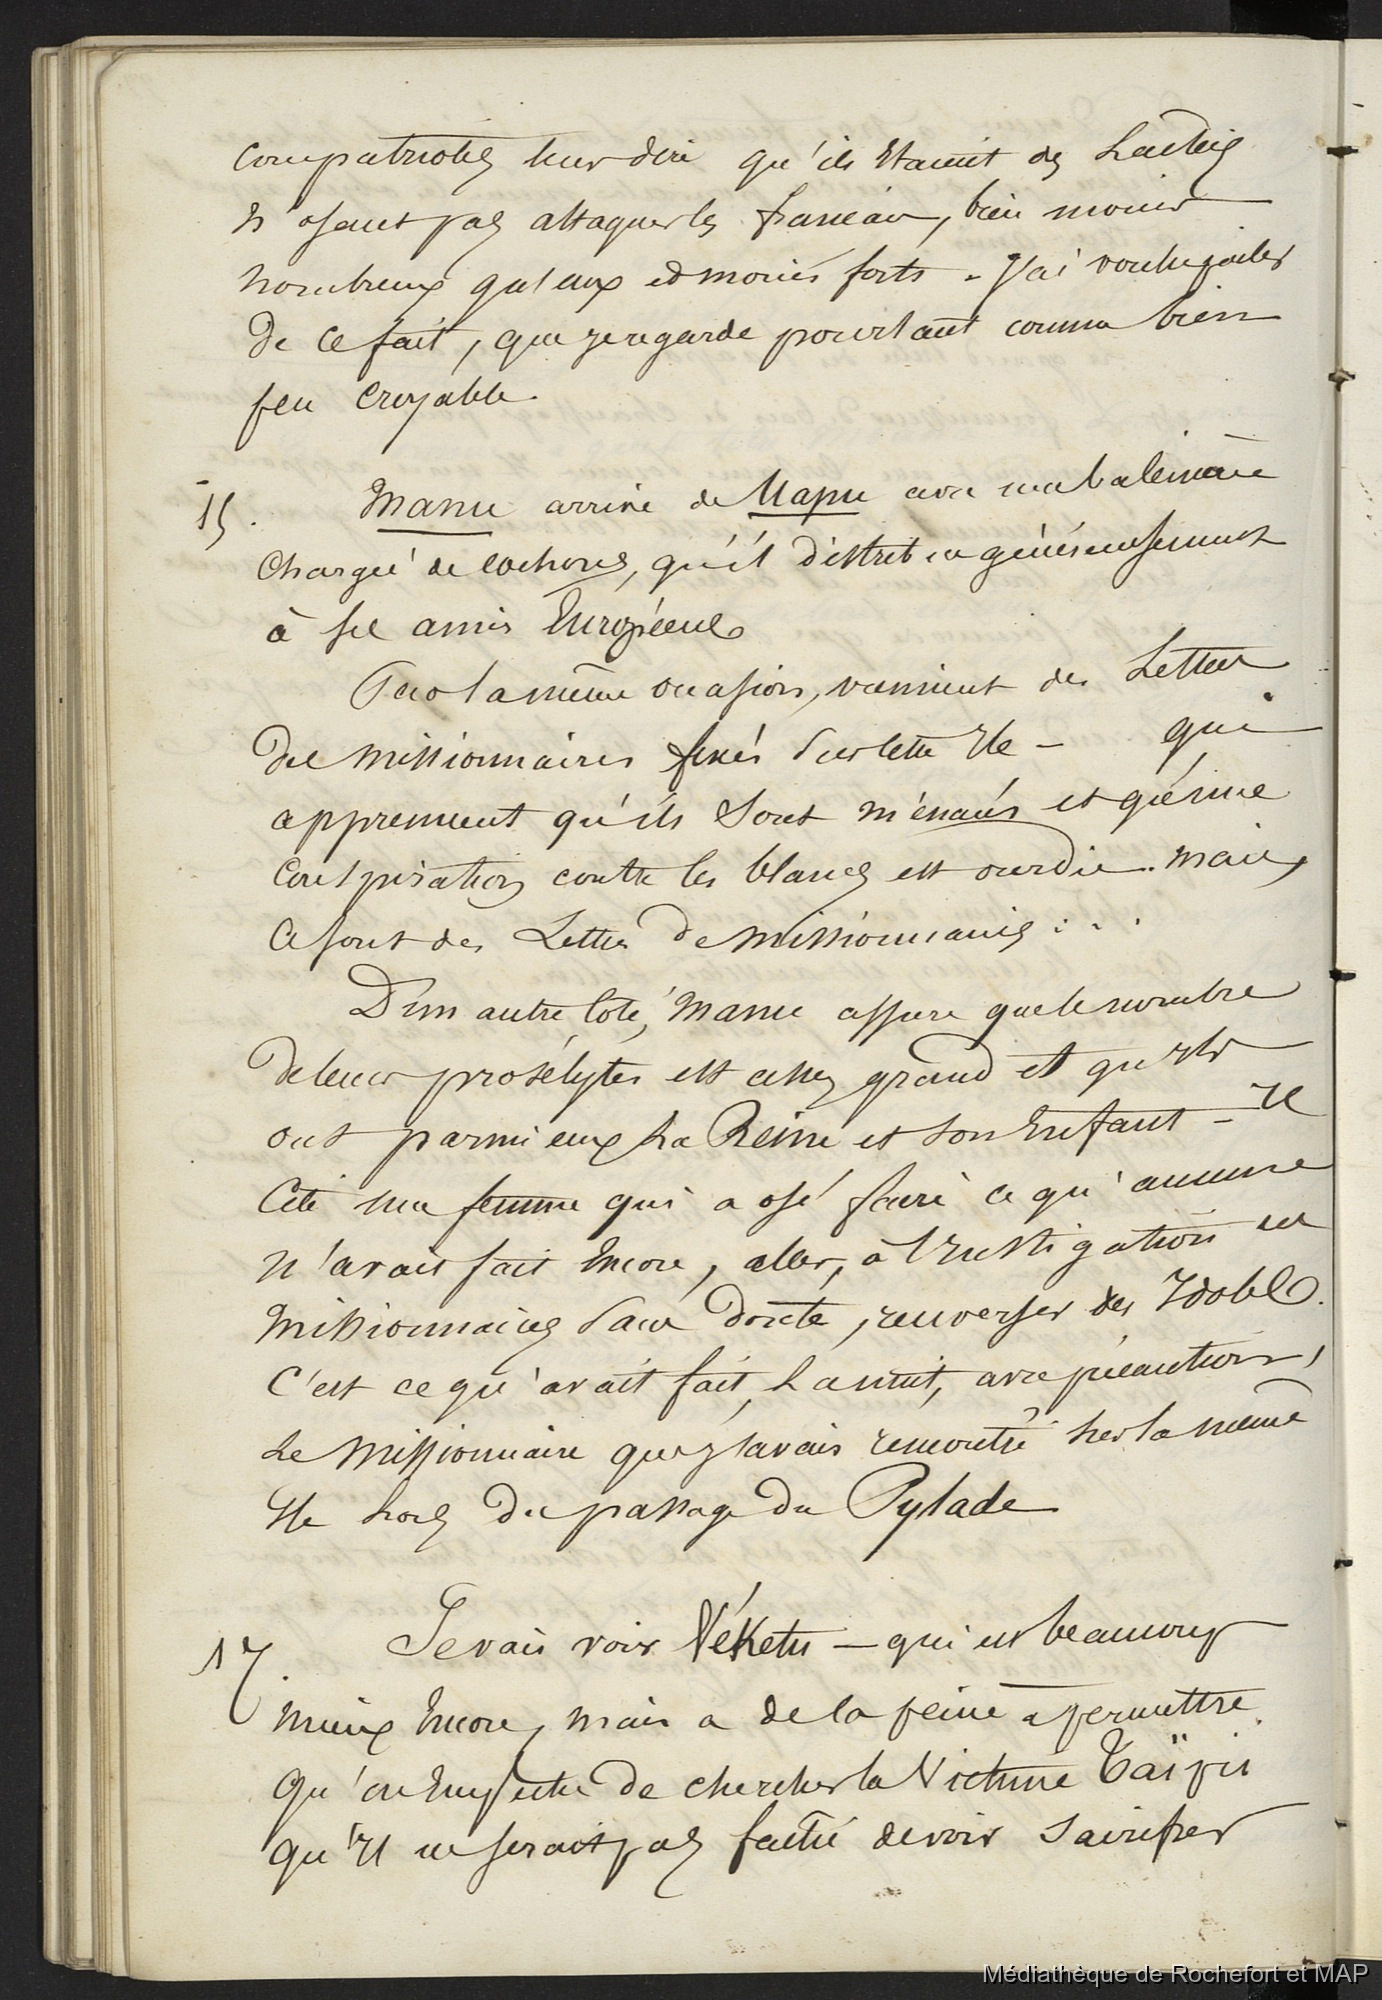 compatriotes leur dire qu'ils étaient des Laches
n'osant pas attaquer les français, bien moins
nombreux qu'eux et moins forts - J'ai voulu parler
de ce fait, que je regarde pourtant comme bien
peu croyable.
15. Manu arrive de Uapu avec une baleinière
chargée de cochons, qu'il distribue généreusement
à ses amis Européens
Par la même occasion, viennent des Lettres
des missionnaires fixés sur cette Ile - qui
apprennent qu'ils sont menacés et qu'une
conspiration contre les blancs est ourdie. mais,
ce sont des Lettres de missionnaires . . .
D'un autre coté, Manu assure que le nombre
de leurs prosélytes est assez grand et qu'Ils
ont parmi eux La Reine et son Enfant - Il
Cite une femme qui a osé faire ce qu'aucune
n'avait fait Encore, aller, à l'Instigation des
missionnaires sans doute, renverser des Idoles.
C'est ce qu'avait fait, La nuit, avec précaution,
Le Missionnaire que j'avais rencontré sur la même
Ile Lors du passage du Pylade
17. Je vais voir Vékétu - qui est beaucoup
mieux Encore, mais a de la peine a permettre
qu'on Empêche de chercher la Victime Taïpii
qu'Il ne serait pas faché de voir Sacrifier
Médiathèque de Rochefort et MAP